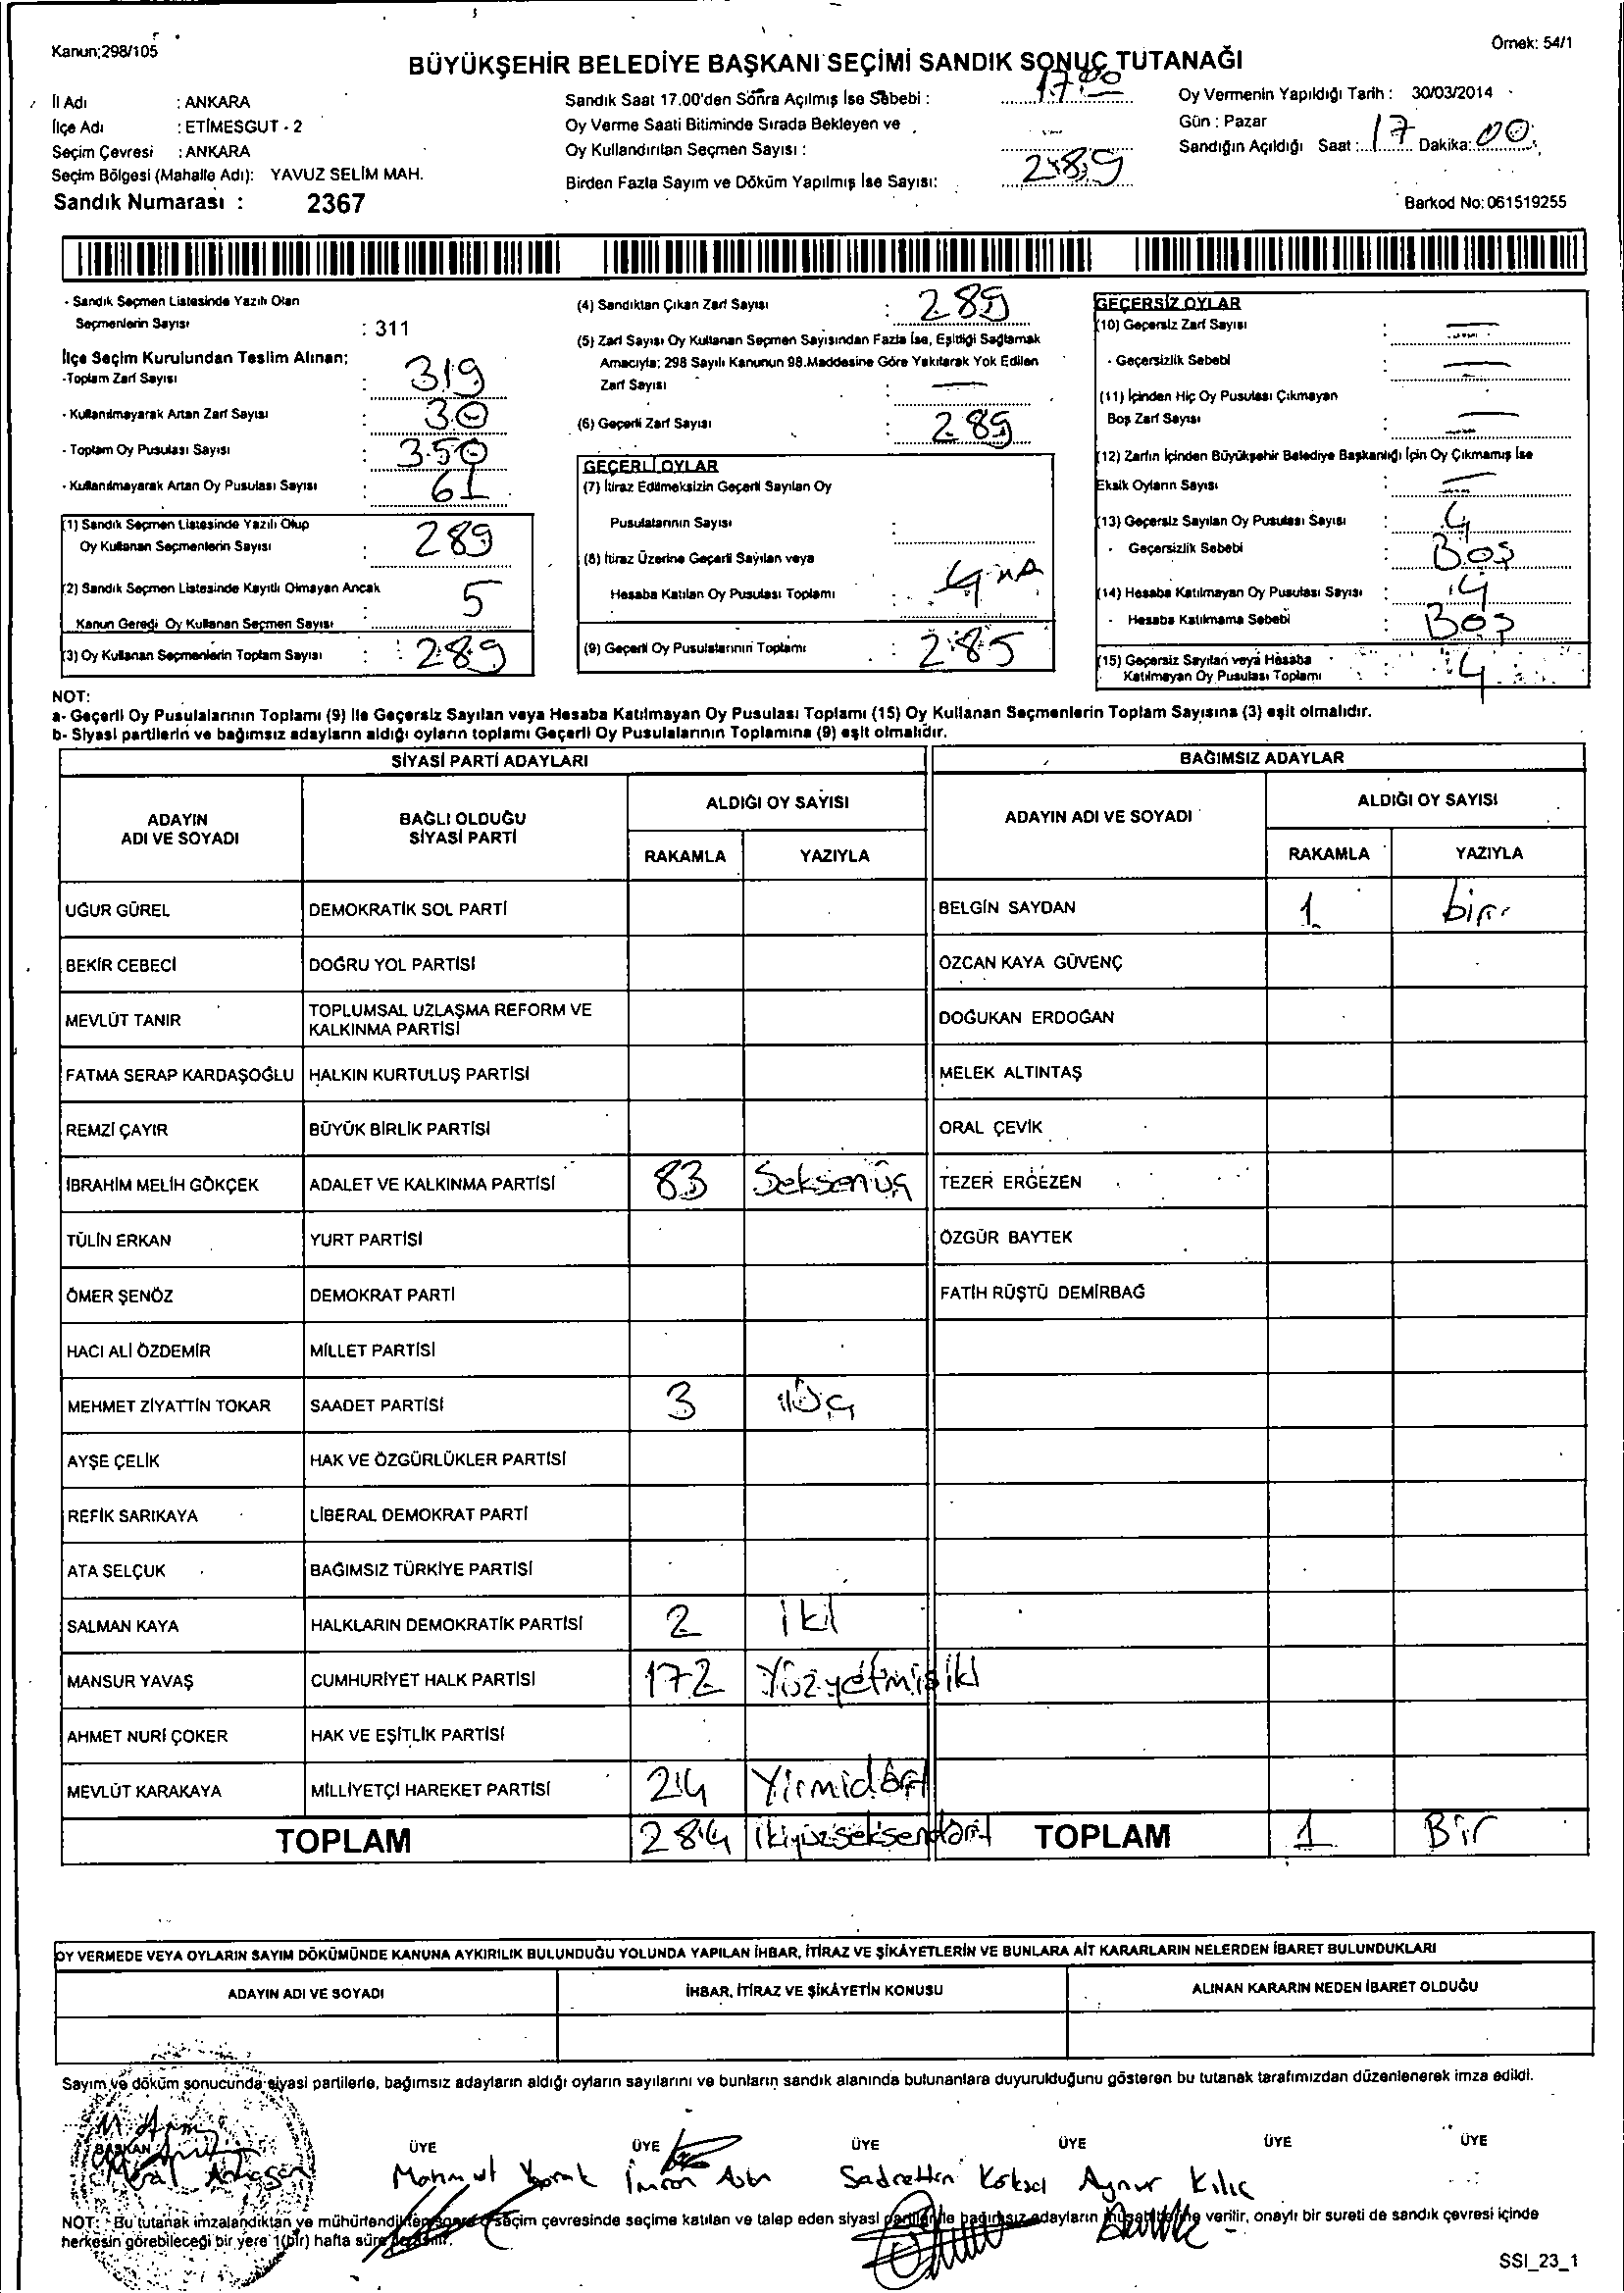 Kanun;298/105
Örnek: 54/1
BÜYÜKŞEHİR BELEDİYE BAŞKANI SEÇİMİ SANDIK SONUÇ TUTANAĞI
İl Adı : ANKARA
İlçe Adı : ETİMESGUT - 2
Seçim Çevresi : ANKARA
Seçim Bölgesi (Mahalle Adı): YAVUZ SELİM MAH.
Sandık Numarası : 2367
Sandık Saat 17.00'den Sonra Açılmış İse Sebebi : 17.00
Oy Verme Saati Bitiminde Sırada Bekleyen ve
Oy Kullandırılan Seçmen Sayısı :
Birden Fazla Sayım ve Döküm Yapılmış İse Sayısı: 289
Oy Vermenin Yapıldığı Tarih : 30/03/2014
Gün : Pazar
Sandığın Açıldığı Saat : 17 Dakika: 00
Barkod No: 061519255
- Sandık Seçmen Listesinde Yazılı Olan
Seçmenlerin Sayısı : 311
İlçe Seçim Kurulundan Teslim Alınan;
-Toplam Zarf Sayısı : 319
- Kullanılmayarak Artan Zarf Sayısı : 30
- Toplam Oy Pusulası Sayısı : 350
- Kullanılmayarak Artan Oy Pusulası Sayısı : 61
(1) Sandık Seçmen Listesinde Yazılı Olup
Oy Kullanan Seçmenlerin Sayısı : 289
(2) Sandık Seçmen Listesinde Kayıtlı Olmayan Ancak
Kanun Geredi Oy Kullanan Seçmen Sayısı 5
(3) Oy Kullanan Seçmenlerin Toplam Sayısı : 289
(4) Sandıktan Çıkan Zarf Sayısı : 289
(5) Zarf Sayısı Oy Kullanan Seçmen Sayısından Fazla İse, Eşitliği Sağlamak
Amacıyla; 298 Sayılı Kanunun 98.Maddesine Göre Yakılarak Yok Edilen
Zarf Sayısı : —
(6) Geçerli Zarf Sayısı : 289
GEÇERLİ OYLAR
(7) İtiraz Edilmeksizin Geçerli Sayılan Oy
Pusulalarının Sayısı :
(8) İtiraz Üzerine Geçerli Sayılan veya
Hesaba Katılan Oy Pusulası Toplamı :
(9) Geçerli Oy Pusulalarının Toplamı : 285
GEÇERSİZ OYLAR
(10) Geçersiz Zarf Sayısı : —
- Geçersizlik Sebebi : —
(11) İçinden Hiç Oy Pusulası Çıkmayan
Boş Zarf Sayısı : —
(12) Zarfın İçinden Büyükşehir Belediye Başkanlığı İçin Oy Çıkmamış İse
Eksik Oyların Sayısı : —
(13) Geçersiz Sayılan Oy Pusulası Sayısı : 4
- Geçersizlik Sebebi : Boş
(14) Hesaba Katılmayan Oy Pusulası Sayısı : 4
- Hesaba Katılmama Sebebi : Boş
(15) Geçersiz Sayılan veya Hesaba
Katılmayan Oy Pusulası Toplamı : 4
NOT:
a- Geçerli Oy Pusulalarının Toplamı (9) ile Geçersiz Sayılan veya Hesaba Katılmayan Oy Pusulası Toplamı (15) Oy Kullanan Seçmenlerin Toplam Sayısına (3) eşit olmalıdır.
b- Siyasi partilerin ve bağımsız adayların aldığı oyların toplamı Geçerli Oy Pusulalarının Toplamına (9) eşit olmalıdır.
SİYASİ PARTİ ADAYLARI BAĞIMSIZ ADAYLAR
ADAYIN ADI VE SOYADI BAĞLI OLDUĞU SİYASİ PARTİ ALDIĞI OY SAYISI ADAYIN ADI VE SOYADI ALDIĞI OY SAYISI
RAKAMLA YAZIYLA RAKAMLA YAZIYLA
UĞUR GÜREL DEMOKRATİK SOL PARTİ BELGİN SAYDAN 1 bir
BEKİR CEBECİ DOĞRU YOL PARTİSİ ÖZCAN KAYA GÜVENÇ
MEVLÜT TANIR TOPLUMSAL UZLAŞMA REFORM VE KALKINMA PARTİSİ DOĞUKAN ERDOĞAN
FATMA SERAP KARDAŞOĞLU HALKIN KURTULUŞ PARTİSİ MELEK ALTINTAŞ
REMZİ ÇAYIR BÜYÜK BİRLİK PARTİSİ ORAL ÇEVİK
İBRAHİM MELİH GÖKÇEK ADALET VE KALKINMA PARTİSİ 83 Seksenüç TEZER ERGEZEN
TÜLİN ERKAN YURT PARTİSİ ÖZGÜR BAYTEK
ÖMER ŞENÖZ DEMOKRAT PARTİ FATİH RÜŞTÜ DEMİRBAĞ
HACI ALİ ÖZDEMİR MİLLET PARTİSİ
MEHMET ZİYATTİN TOKAR SAADET PARTİSİ 3 üç
AYŞE ÇELİK HAK VE ÖZGÜRLÜKLER PARTİSİ
REFİK SARIKAYA LİBERAL DEMOKRAT PARTİ
ATA SELÇUK BAĞIMSIZ TÜRKİYE PARTİSİ
SALMAN KAYA HALKLARIN DEMOKRATİK PARTİSİ 2 iki
MANSUR YAVAŞ CUMHURİYET HALK PARTİSİ 172 Yüzyetmişiki
AHMET NURİ ÇOKER HAK VE EŞİTLİK PARTİSİ
MEVLÜT KARAKAYA MİLLİYETÇİ HAREKET PARTİSİ 24 Yirmidört
TOPLAM 284 ikiyüzseksendört TOPLAM 1 Bir
OY VERMEDE VEYA OYLARIN SAYIM DÖKÜMÜNDE KANUNA AYKIRILIK BULUNDUĞU YOLUNDA YAPILAN İHBAR, İTİRAZ VE ŞİKÂYETLERİN VE BUNLARA AİT KARARLARIN NELERDEN İBARET BULUNDUKLARI
ADAYIN ADI VE SOYADI İHBAR, İTİRAZ VE ŞİKÂYETİN KONUSU ALINAN KARARIN NEDEN İBARET OLDUĞU
Sayım ve döküm sonucunda siyasi partilerle, bağımsız adayların aldığı oyların sayılarını ve bunların sandık alanında bulunanlara duyurulduğunu gösteren bu tutanak tarafımızdan düzenlenerek imza edildi.
BAŞKAN ÜYE ÜYE ÜYE ÜYE ÜYE ÜYE
Meral Mahmut İmran Sadrettin Köksal Aynur Kılıç
NOT: Bu tutanak imzalandıktan ve mühürlendikten sonra seçim çevresinde seçime katılan ve talep eden siyasi partilerle bağımsız adayların müşahitlerine verilir, onaylı bir sureti de sandık çevresi içinde
herkesin görebileceği bir yere 1(bir) hafta süre
SSI_23_1